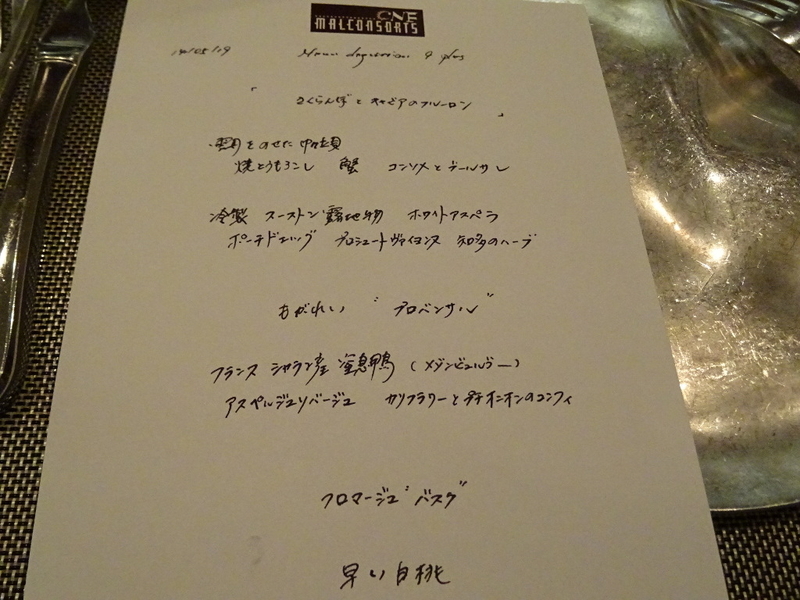 ONE
MALCONSORTS
14/05/19 Menu degustation 9 plus
「さくらんぼとキャビアのフルーロン」
をのせた
焼とうもろこし 蟹 コンソメとブールサレ
冷製 スーストン 露地物 ホワイトアスペラ
ポーチドエッグ プロシュートヴァイヨンヌ 知多のハーブ
もがれい "プロバンサル"
フランス シャラン産 窒息鴨 (メゾンビュルゴー)
アスペルジュソバージュ カリフラワーとプチオニオンのコンフィ
フロマージュ"バスク"
早い白桃